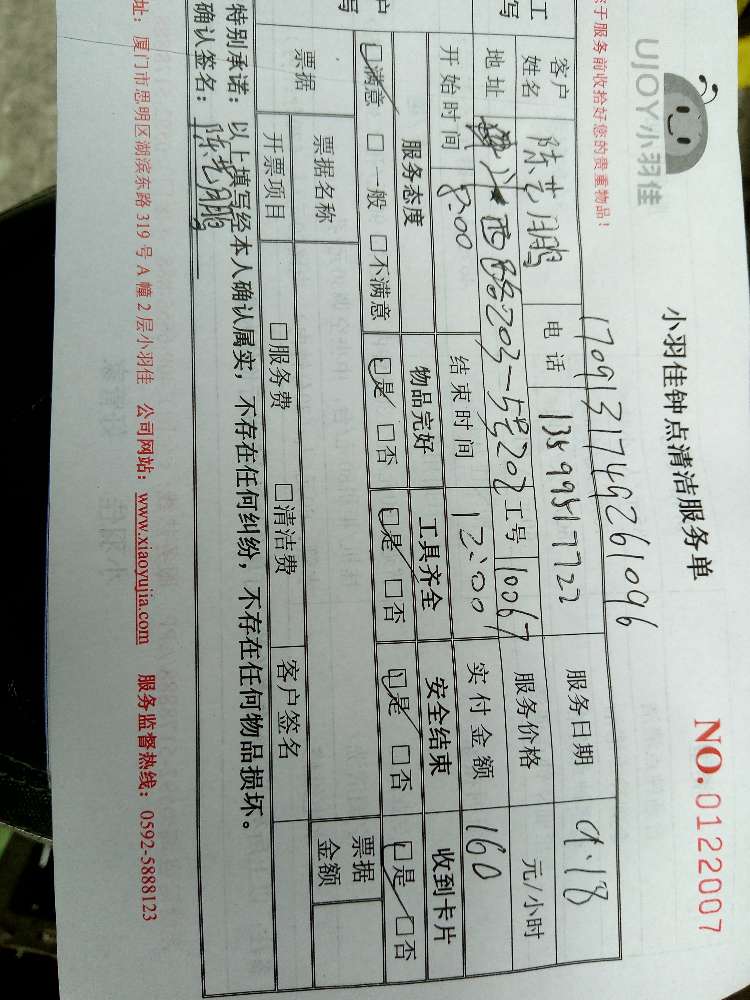 UJOY小羽佳
小羽佳钟点清洁服务单
NO.0122007
于服务前收拾好您的贵重物品！
1709131749261096
客户姓名 陈艺鹏 电话 13599517722 服务日期 9.18
地址 西郭203-5号202 工号 10067 服务价格 元/小时
开始时间 8:00 结束时间 12:00 实付金额 160
服务态度 物品完好 工具齐全 安全结束 收到卡片
☑满意 □一般 □不满意 ☑是 □否 ☑是 □否 ☑是 □否 ☑是 □否
票据 票据名称 票据金额
开票项目 □服务费 □清洁费 客户签名
特别承诺：以上填写经本人确认属实，不存在任何纠纷，不存在任何物品损坏。
确认签名：陈艺鹏
址：厦门市思明区湖滨东路319号A幢2层小羽佳 公司网站：www.xiaoyujia.com 服务监督热线：0592-5888123